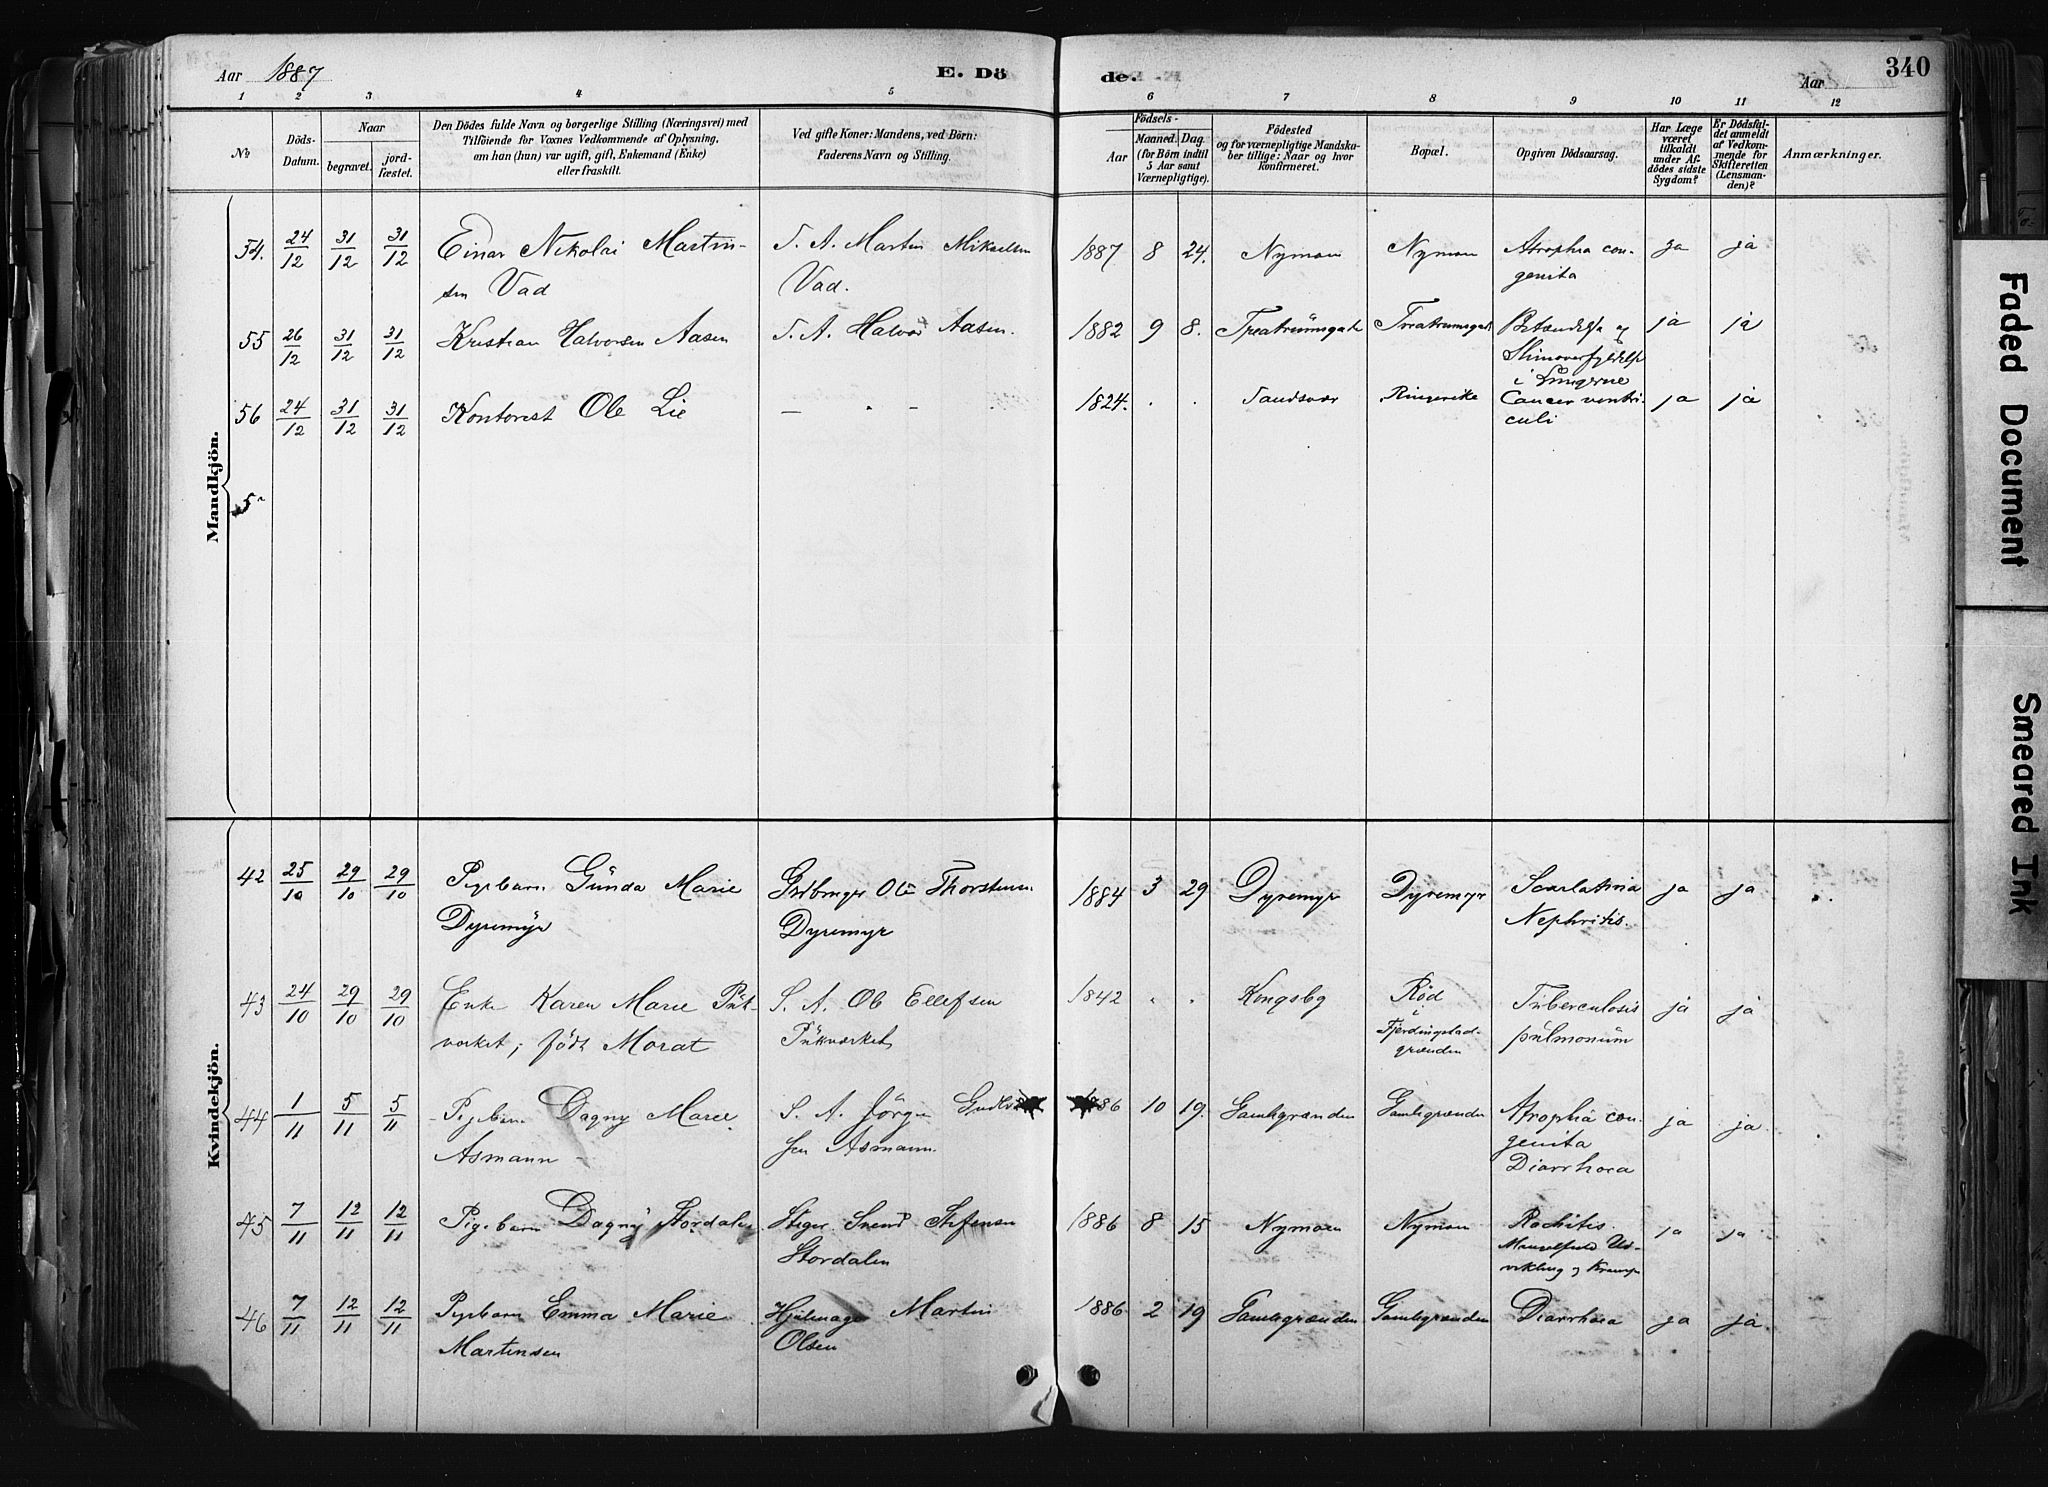 Aar 1887
E. Dö
de.
Aar
340
1 2 3 4 5 6 7 8 9 10 11 12
No
Döds-
Datum.
Naar
begravet.
jord-
fæstet.
Den Dödes fulde Navn og borgerlige Stilling (Næringsvei) med
Tilföiende for Voxnes Vedkommende af Oplysning,
om han (hun) var ugift, gift, Enkemand (Enke)
eller fraskilt.
Ved gifte Koner: Mandens, ved Börn:
Faderens Navn og Stilling.
Födsels-
Aar
Maaned
Dag
(for Börn indtil
5 Aar samt
Værnepligtige).
Födested
og for værnepligtige Mandska-
ber tillige: Naar og hvor
konfirmeret.
Bopæl.
Opgiven Dödsaarsag.
Har Læge
været
tilkaldt
under Af-
dödes sidste
Sygdom?
Er Dödsfal-
det anmeldt
af Vedkom-
mende for
Skifteretten
(Lensman-
den)?
Anmærkninger.
Mandkjön.
54. 24/12 31/12 31/12 Einar Nikolai Martin- S. A. Martin Mikaelsen 1887 8 24. Nymoen Nymoen Atrophia con- ja ja
sen Vad Vad. genita
55 26/12 31/12 31/12 Kristian Halvorsen Aasen S. A. Halvor Aasen. 1882 9 8. Treatrumsgade Treatrumsgade Betændelse og ja ja
Slimoverfyldelse
i Lungerne
56 24/12 31/12 31/12 Kontorist Ole Lie – " – 1824. . . Sandsvær Ringerike Cancer ventri- ja ja
culi
5
Kvindekjön.
42 25/10 29/10 29/10 Pigebarn Gunda Marie Gaardbruger Ole Thorstensen 1884 3 29 Dyremyr Dyremyr Scarlatina ja ja
Dyremyr Dyremyr Nephritis.
43 24/10 29/10 29/10 Enke Karen Marie Puk- S. A. Ole Ellefsen 1842 " " Kongsbg Röd Tuberculosis ja ja
verket; född Morat Pukværket i pulmonum
Fjerdingstad-
grænden
44 1/11 5/11 5/11 Pigebarn Dagny Marie S. A. Jörgen 1886 10 19. Gamlegrænden Gamlegrænden Atrophia con- ja ja.
Asmann sen Asmann. genita
Diarrhoea
45 7/11 12/11 12/11 Pigebarn Dagny Stordalen Stiger Svend Stefensen 1886 8 15 Nymoen Nymoen Rachitis. ja ja
Stordalen Mangelfuld Ud-
vikling og Krampe
46 7/11 12/11 12/11 Pigebarn Emma Marie Hjulmager Martin 1886 2 19 Gamlegrænden Gamlegrænden Diarrhoea ja ja.
Martinsen Olsen
Faded Document
Smeared Ink